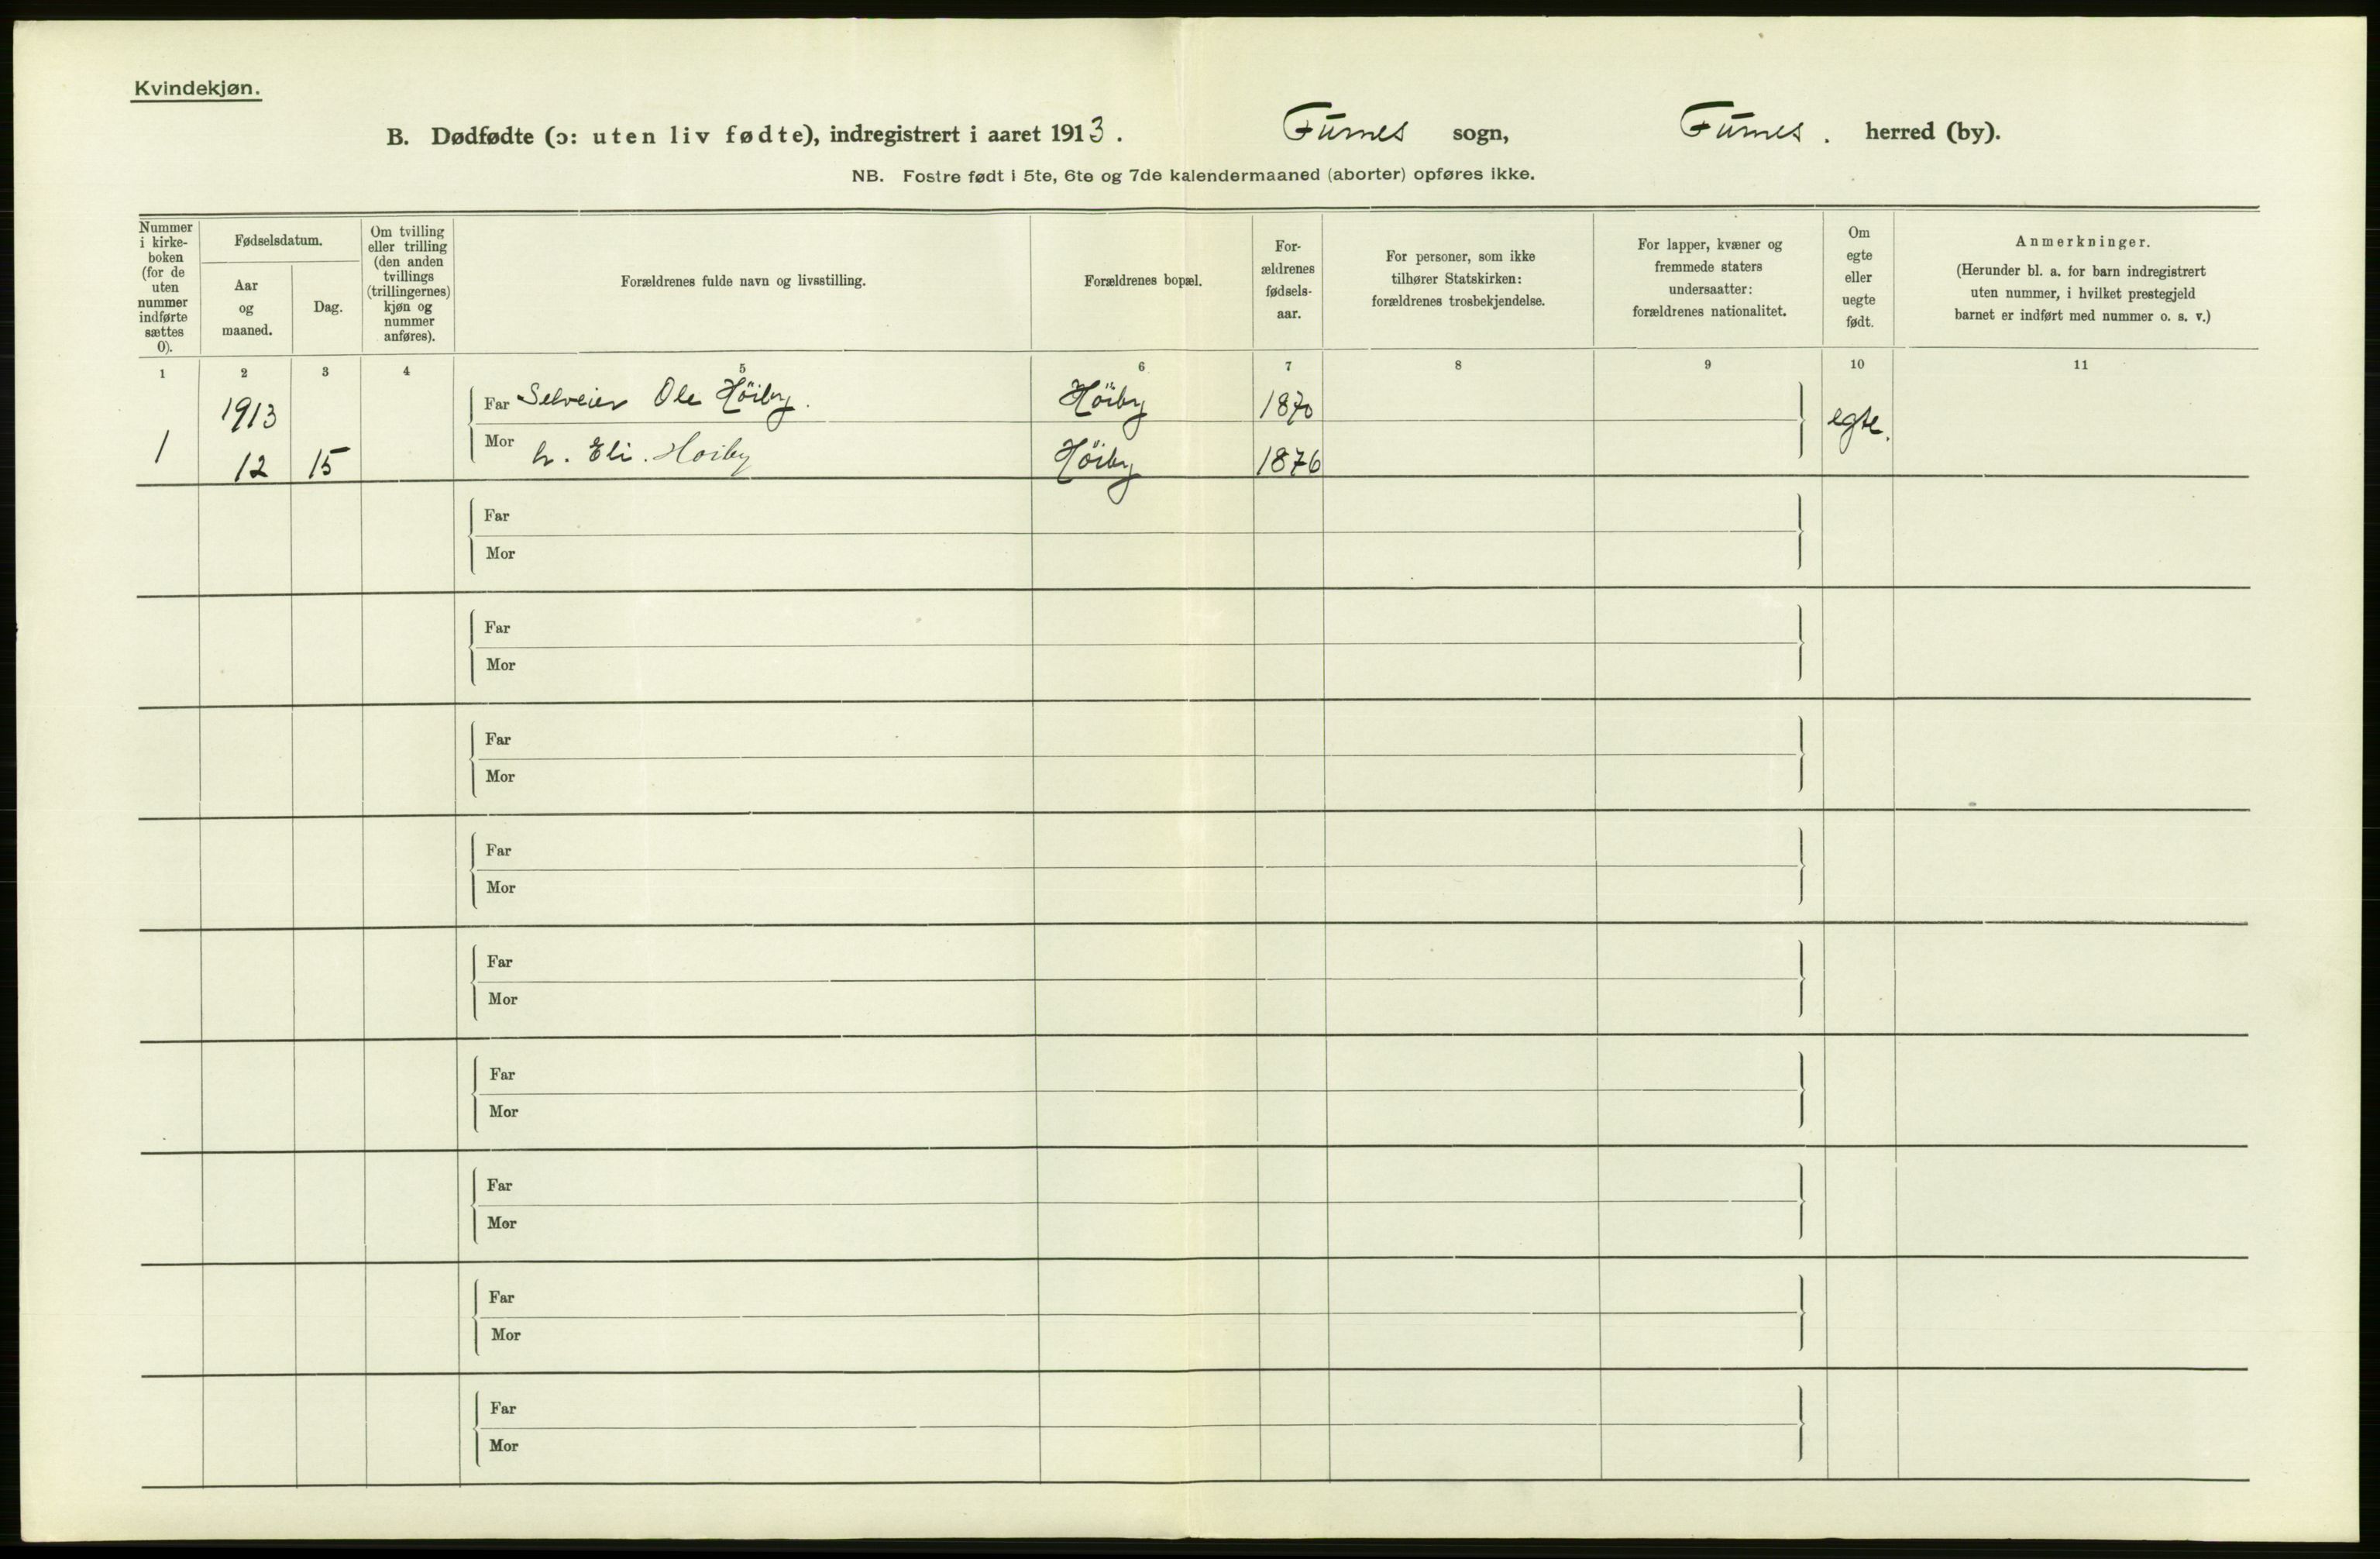 Kvindekjøn.
B. Dødfødte (ɔ: uten liv fødte), indregistrert i aaret 1913. Furnes sogn, Furnes. herred (by).
NB. Fostre født i 5te, 6te og 7de kalendermaaned (aborter) opføres ikke.
Nummer
i kirke-
boken
(for de
uten
nummer
indførte
sættes
0).
Fødselsdatum.
Aar
og
maaned.
Dag.
Om tvilling
eller trilling
(den anden
tvillings
(trillingernes)
kjøn og
nummer
anføres).
Forældrenes fulde navn og livsstilling.
Forældrenes bopæl.
For-
ældrenes
fødsels-
aar.
For personer, som ikke
tilhører Statskirken:
forældrenes trosbekjendelse.
For lapper, kvæner og
fremmede staters
undersaatter:
forældrenes nationalitet.
Om
egte
eller
uegte
født.
Anmerkninger.
(Herunder bl. a. for barn indregistrert
uten nummer, i hvilket prestegjeld
barnet er indført med nummer o. s. v.)
1 2 3 4 5 6 7 8 9 10 11
1913 Far Selveier Ole Höiby. Höiby 1870 egte.
1 12 15 Mor h. Eli. Hoiby Höiby 1876
Far
Mor
Far
Mor
Far
Mor
Far
Mor
Far
Mor
Far
Mor
Far
Mor
Far
Mor
Far
Mor